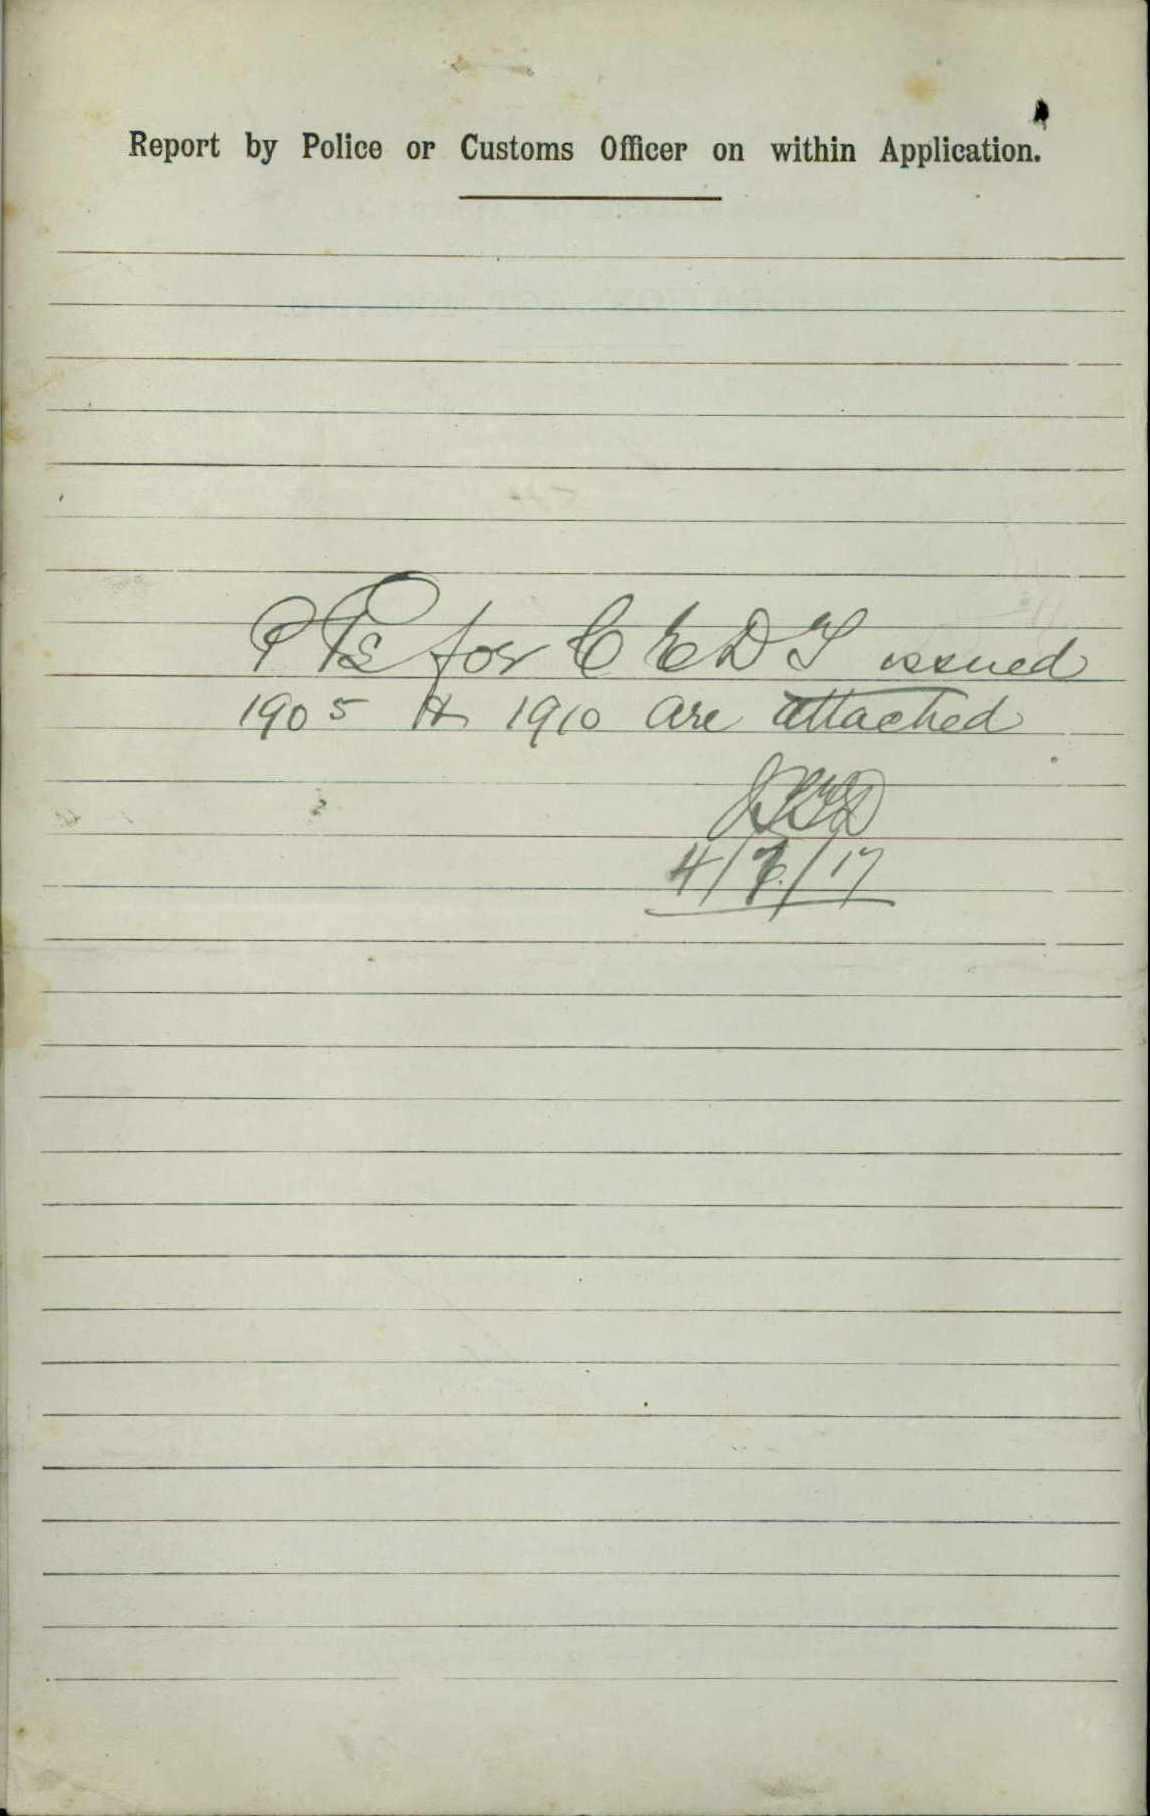 Report by Police or Customs Officer on within Application.
P Ps for C E D T issued
1905 & 1910 are attached
4/7/17